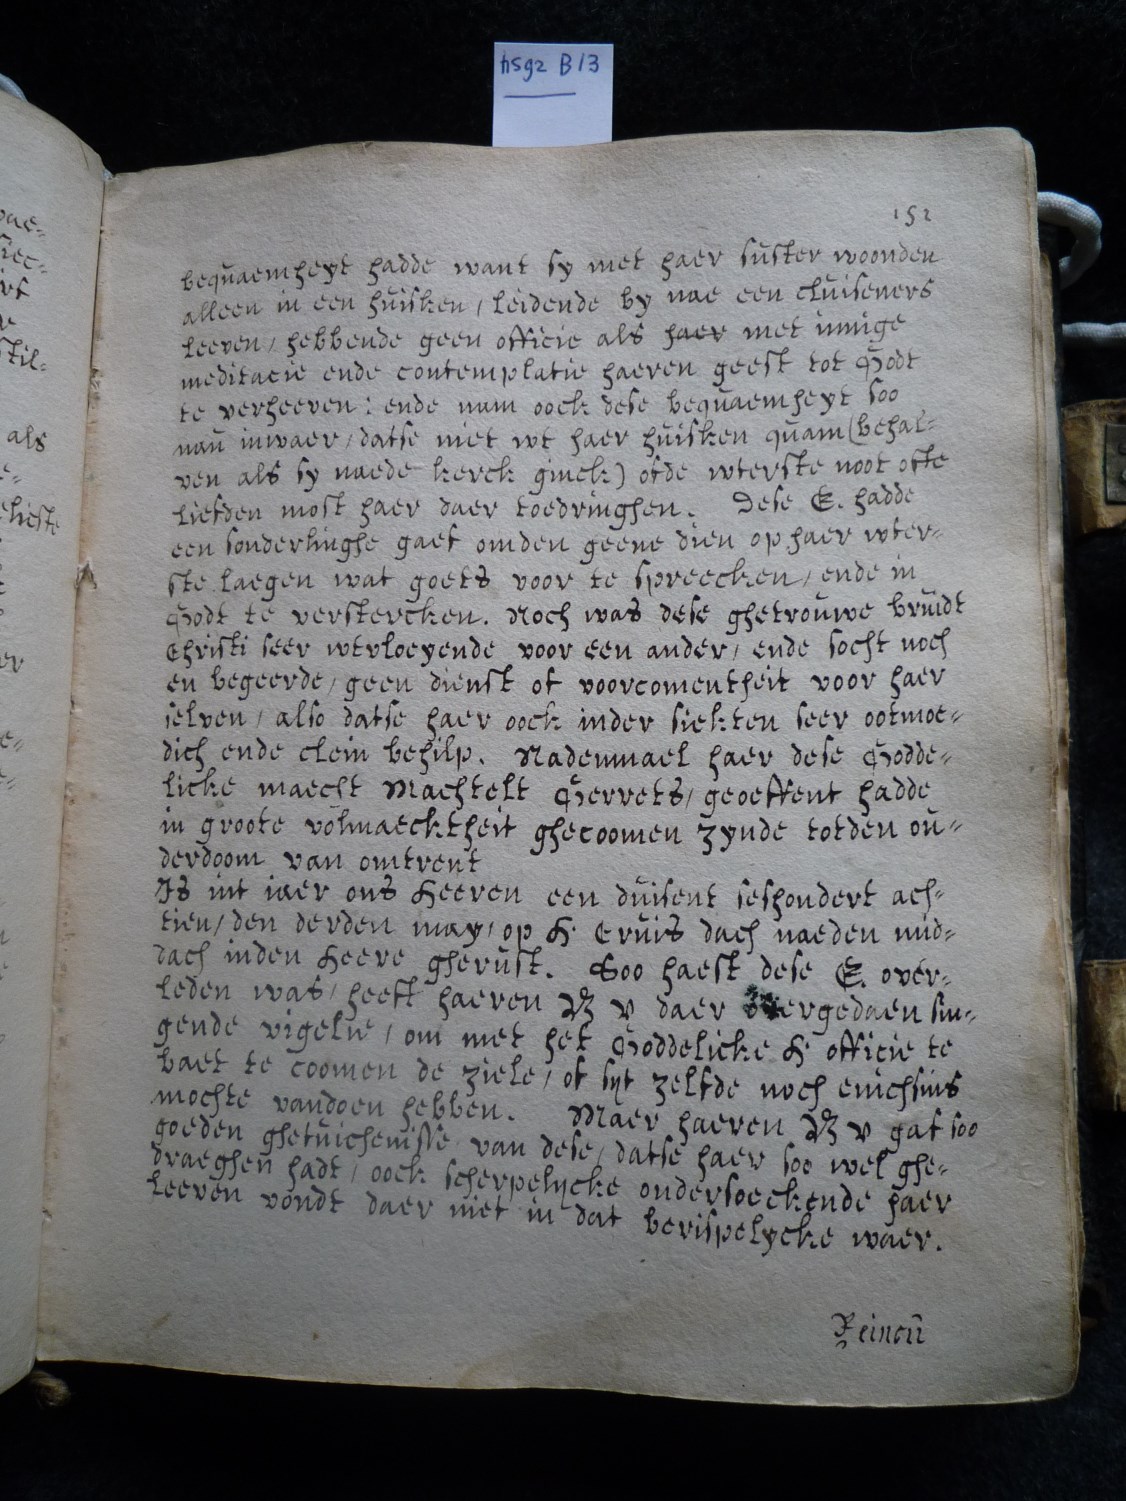 hs92 B13
152
bequaemheyt hadde want sy met haer suster woonden
alleen in een huisken / leidende by nae een cluiseners
leeven / hebbende geen officie als haer met innige
meditacie ende contemplatie haeren geest tot Godt
te verheeven : ende nam oock dese bequaemheyt soo
nau inwaer / datse niet wt haer huisken quam (behal-
ven als sy naede kerck ginck) ofde wterste noot ofte
liefden most haer daer toedringhen. Dese E. hadde
een sonderlinghe gaef omden geene dien op haer wter-
ste laegen wat goets voor te spreecken / ende in
Godt te verstercken. Noch was dese ghetrouwe bruidt
Christi seer wtvloeyende voor een ander / ende socht noch
en begeerde / geen dienst of voorcomentheit voor haer
selven / also datse haer oock inder siekten seer ootmoe-
dich ende clein behilp. Nademmael haer dese Godde-
licke maecht Machtelt Gerrets / geoeffent hadde
in groote volmaecktheit ghecoomen zynde totden ou-
derdoom van omtrent
Is int iaer ons Heeren een duisent seshondert ach-
tien / den derden may / op H Cruis dach naeden mid-
dach inden Heere gherust. Soo haest dese E. over-
leden was / heeft haeren v daer overgedaen sin-
gende vigelie / om met het Goddelicke H officie te
baet te coomen de ziele / of syt zelfde noch enichsins
mochte vandoen hebben. Maer haeren v gaf soo
goeden ghetuichenisse van dese / datse haer soo wel ghe-
draeghen hadt / oock scherpelycke ondersoeckende haer
leeven vondt daer niet in dat berispelycke waer.
Reinou
als
stil-